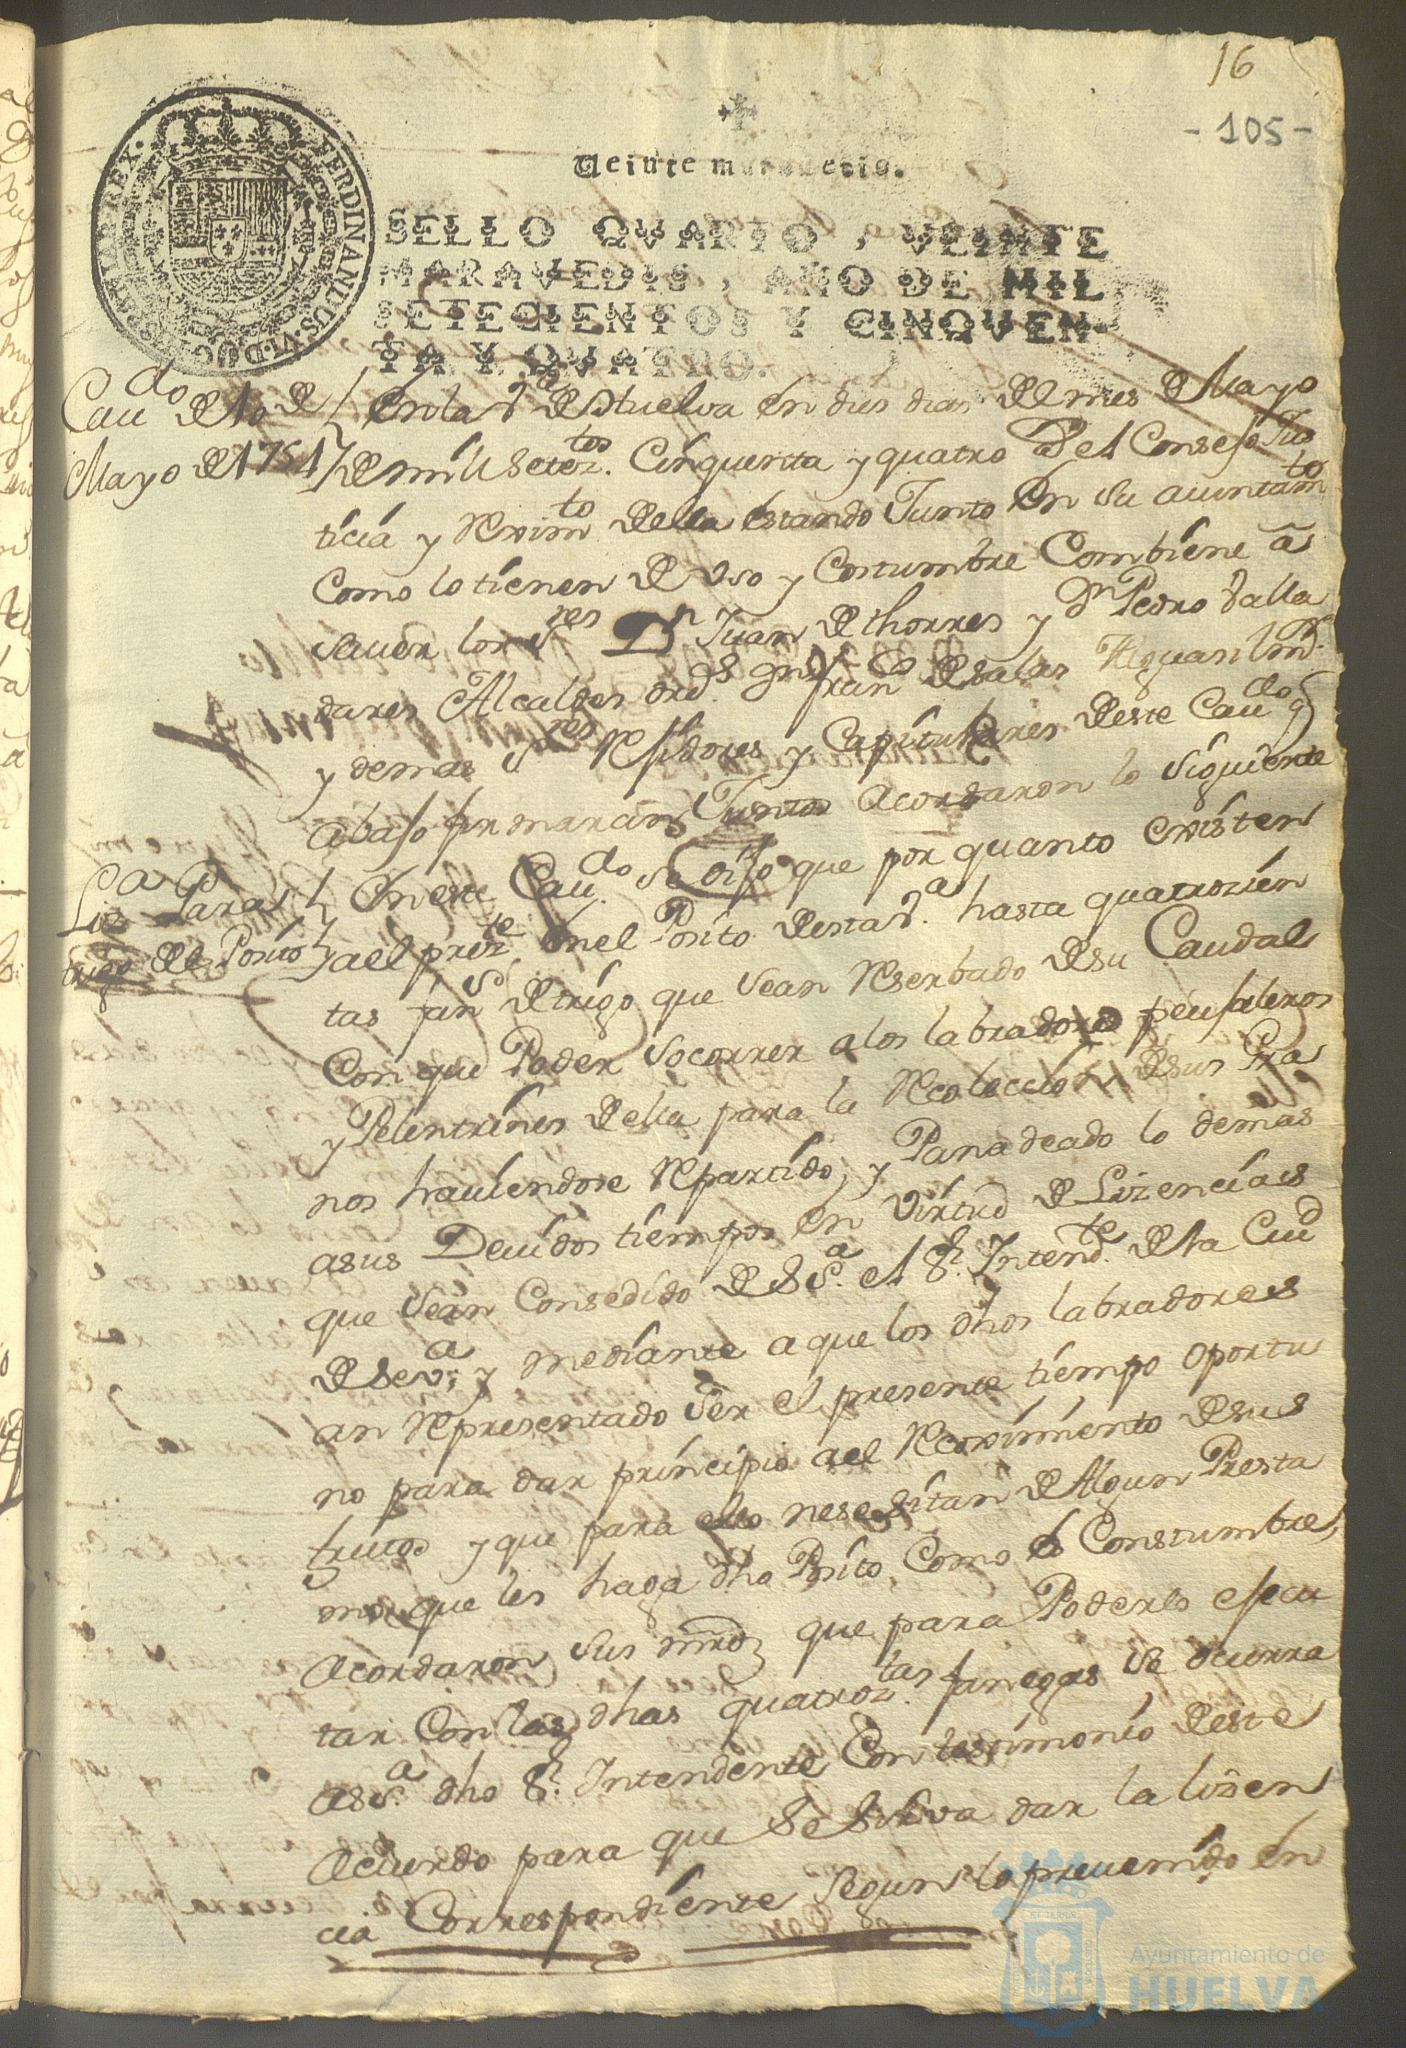 16
-105-
Veinte maravedis.
SELLO QVARTO, VEINTE
MARAVEDIS, AÑO DE MIL
SETECIENTOS Y CINQVEN-
TA Y QVATRO.
FERDINANDUS·VI·D·G· HISPANIAR·REX·
Cau.do de 10 de
Mayo de 1754
En la V.a de Huelva en dies dias del mes de Mayo
de mill setez.tos Cinquenta y quatro el Consejo Jus
ticia y Reximto della estando Junto en su ayuntamto
Como lo tienen de Uso y Costumbre Combiene a
Sauer los S.res Dn Juan de thorres y Dn Pedro Valla
dares Alcaldes ord.s Franco de Salas Alguasil m.r
y demas S.res Rejidores y Capitulares deste Cau.do q
abajo firmaran Juntos Acordaron lo siguiente
Liz.a Para el
trigo del Posito
En este Cau.do se dijo que por quanto existen
ael prez.te en el Posito desta V.a hasta quatrozien
tas fan.s de trigo que sean Reserbado de su Caudal
Con que Poder socorrer a los labradores peujaleros
y Pelentrines della para la Recoleccion de sus Gra
nos hauiendose Repartido, y Panadeado lo demas
asus Deuidos tiempos en Virtud de Lizencias
que sean Consedido de S.Sa. el S.r Intend.te de la Ciud
de Seva; y mediante a que los dhos labradores
an Representado Ser el presente tiempo oportu
no para dar principio ael Recoximiento de sus
frutos y que para ello nesesitan de Algun Presta
mo que les haga dho Posito, Como es Constumbre,
Acordaron Sus mrds que para Poderlo ejecu
tar Con las dhas quatroz.tas fanegas se ocurra
a S.Sa. dho S.r Intendente Con testimonio deste
Acuerdo para que Se Sirva dar la lizen
cia Correspondiente segun lo preuenido en
Ayuntamiento de
HUELVA